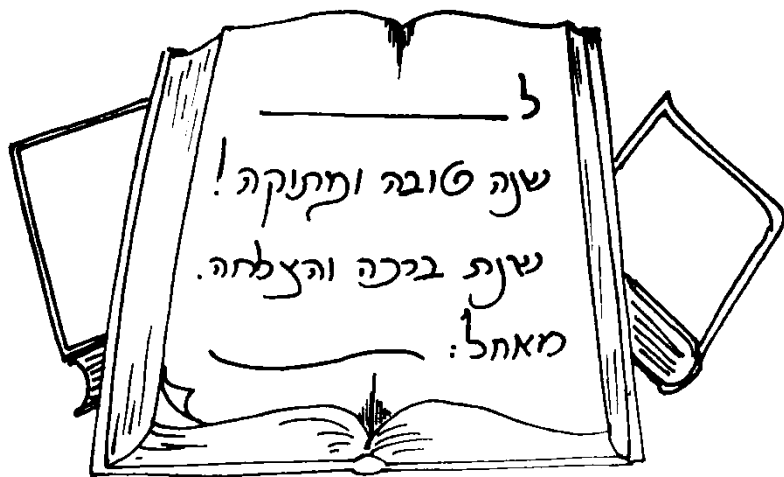 ל
שנה טובה ומתוקה!
שנת ברכה והצלחה.
מאחל: